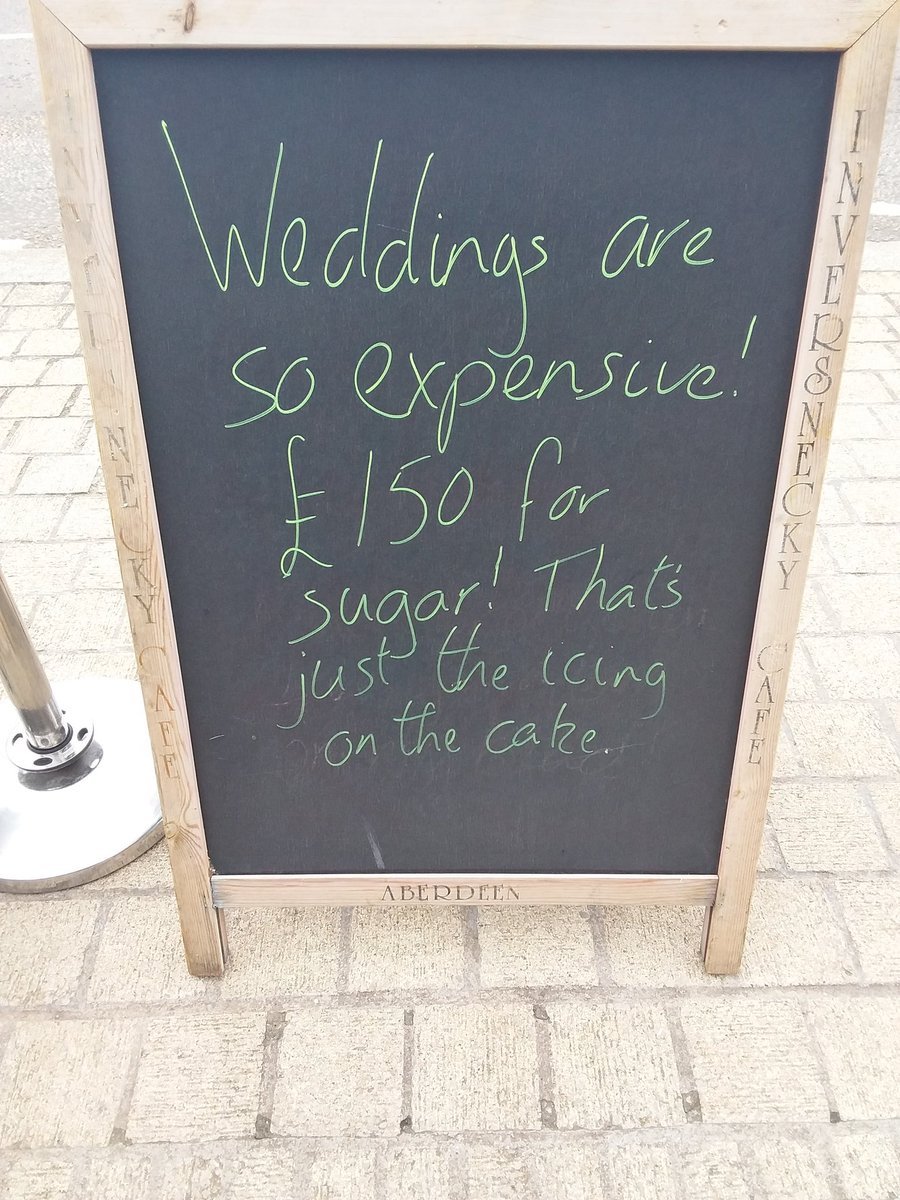 Weddings are
so expensive!
£150 for
sugar! That's
just the icing
on the cake.
INVERSNECKY CAFE
INVERSNECKY CAFE
ABERDEEN